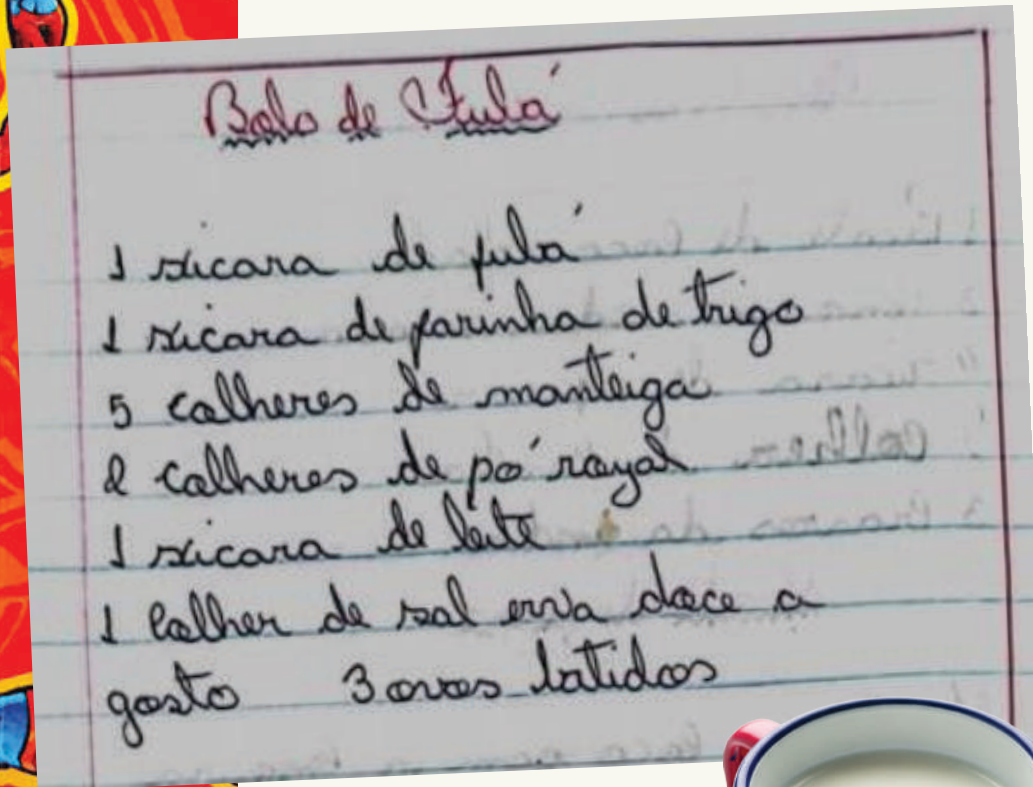 Bolo de Fulá
1 xicara de fulá
1 xicara de farinha de trigo
5 calheres de manteiga
2 calheres de pó rayal
1 xicara de leite
1 calher de sal erva doce a
gosto 3 ovos batidos